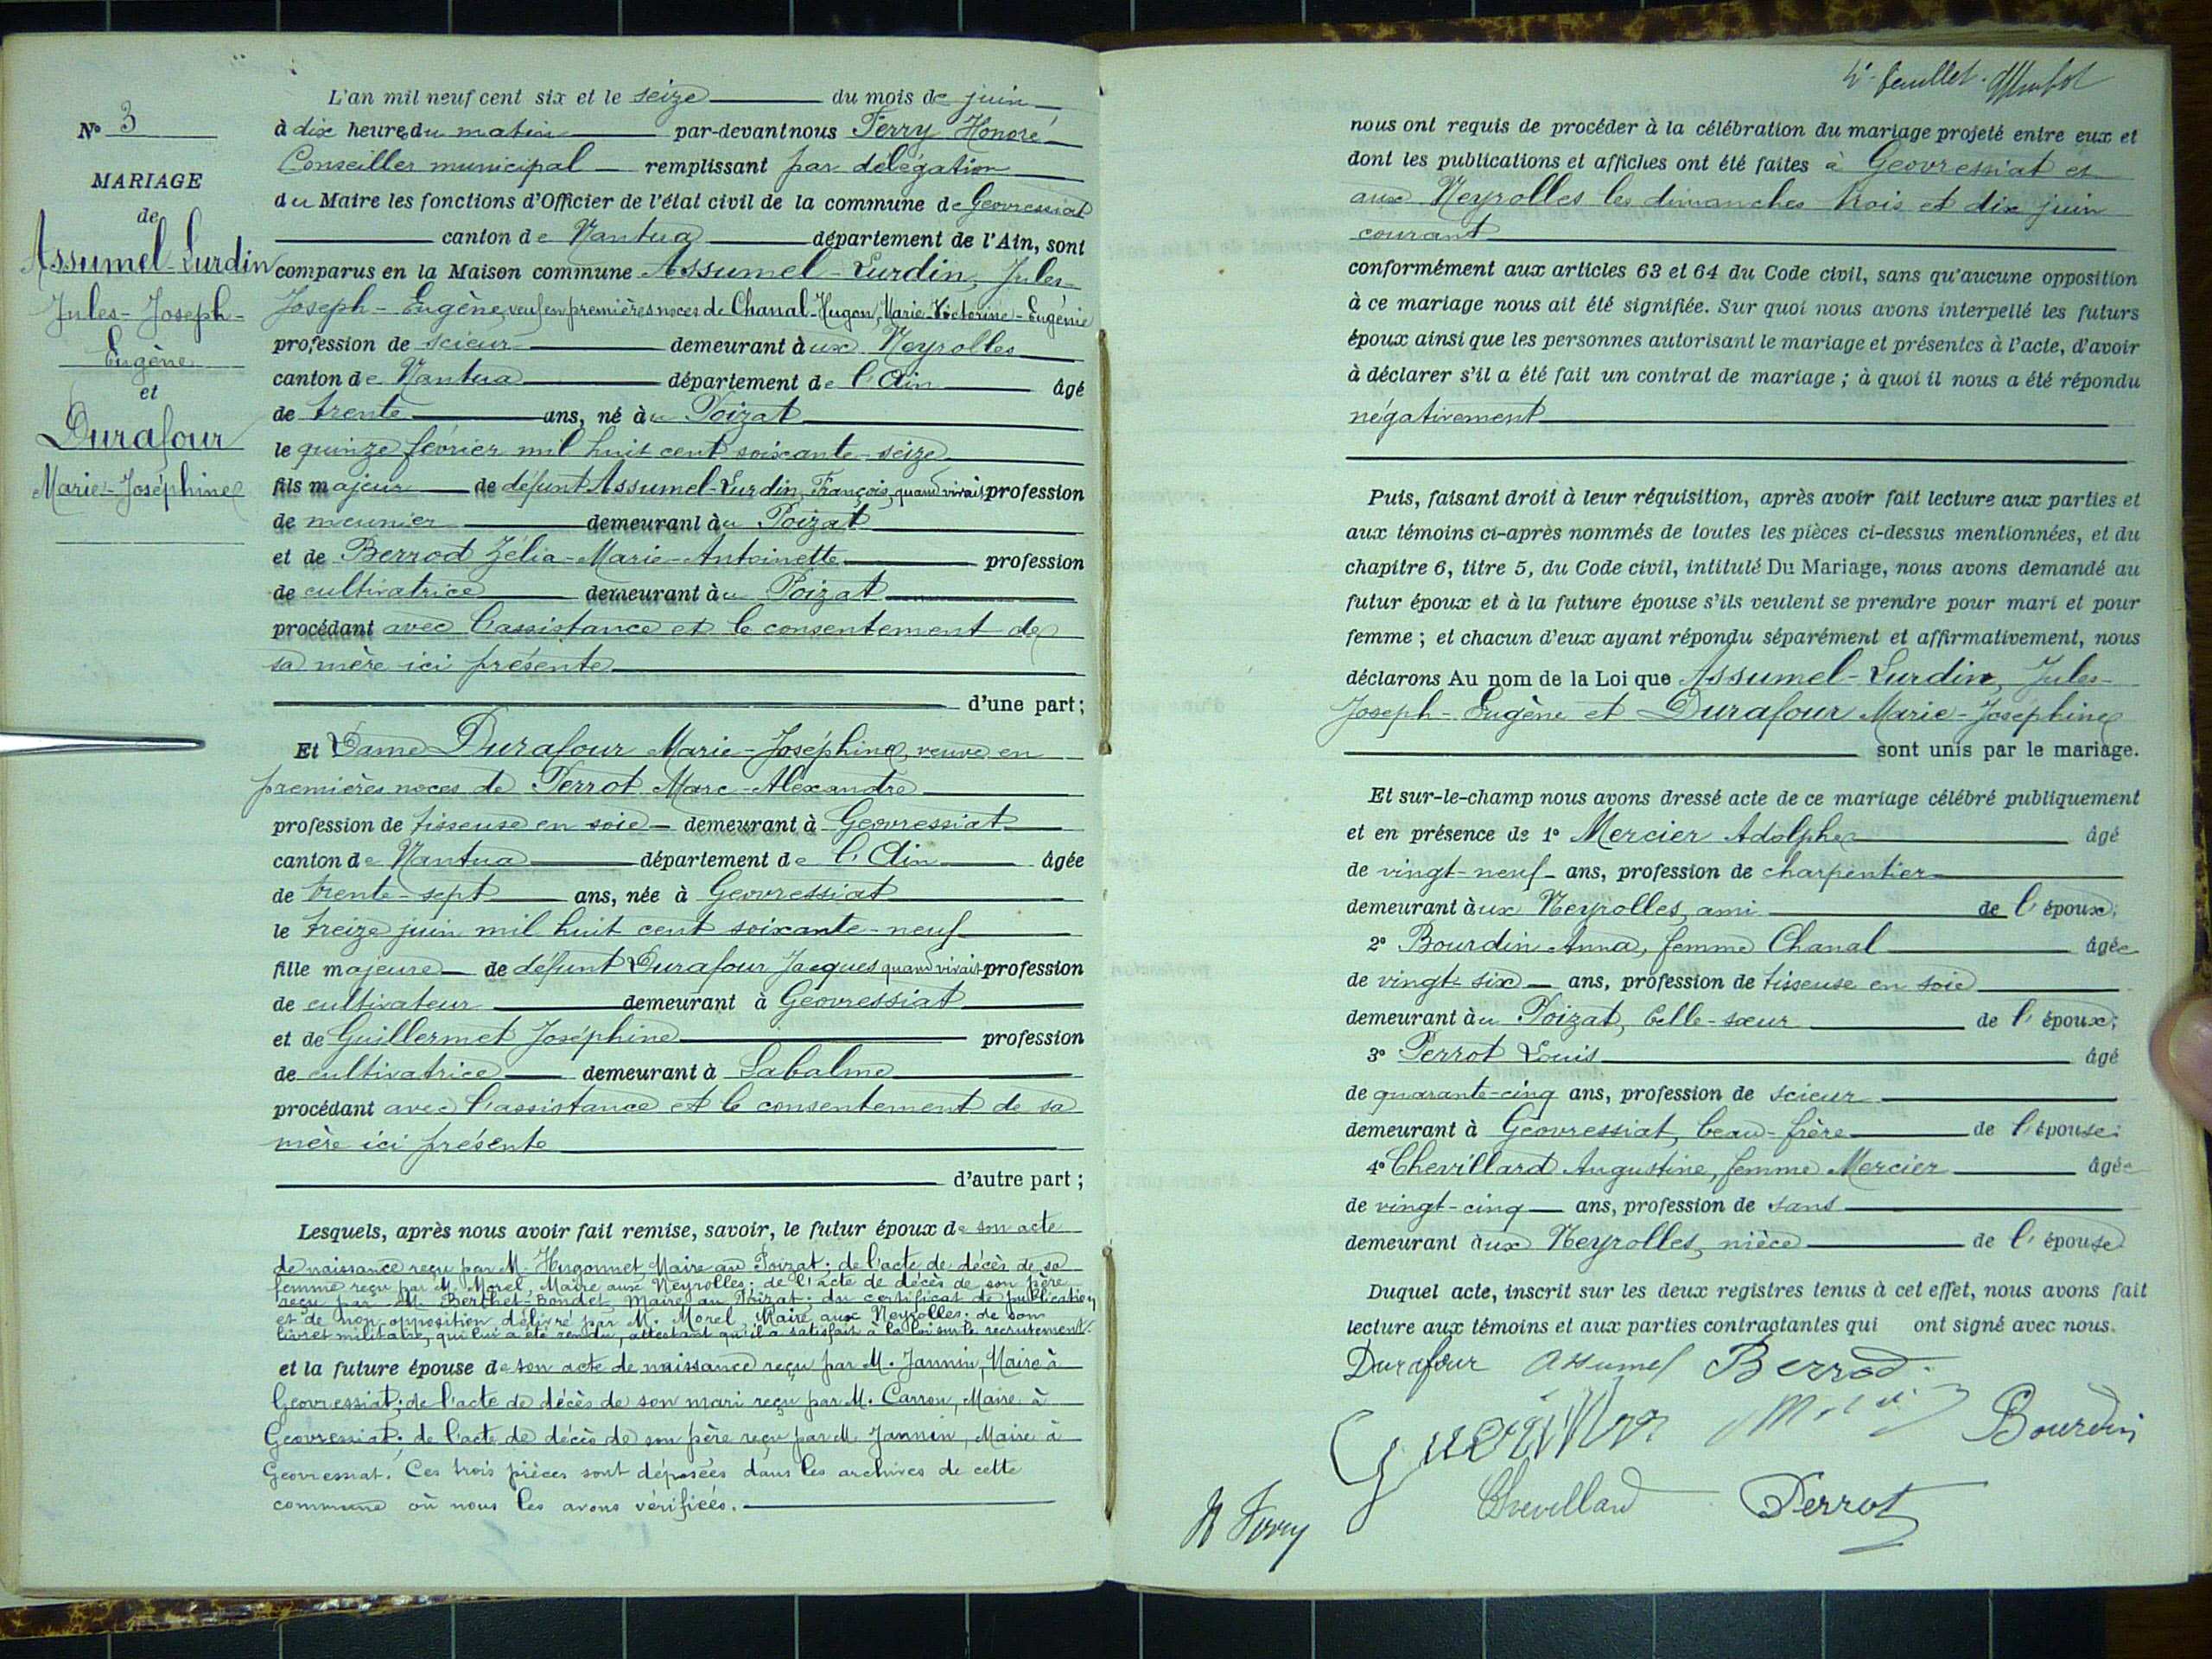 N° 3
MARIAGE
de
Assumel-Lurdin
Jules-Joseph-
Eugène
et
Durafour
Marie-Joséphine
L'an mil neuf cent six et le seize du mois de juin
à dix heures du matin par-devant nous Ferry Honoré
Conseiller municipal remplissant par délégation
du Maire les fonctions d'Officier de l'état civil de la commune de Geovressiat
canton de Nantua département de l'Ain, sont
comparus en la Maison commune Assumel-Lurdin, Jules-
Joseph-Eugène, veuf en premières noces de Chanal-Hugon, Marie-Victorine-Eugénie
profession de scieur demeurant aux Neyrolles
canton de Nantua département de l'Ain âgé
de trente ans, né au Poizat
le quinze février mil huit cent soixante-seize
fils majeur de défunt Assumel-Lurdin, François, quand vivait profession
de meunier demeurant au Poizat
et de Berrod Zélia-Marie-Antoinette profession
de cultivatrice demeurant au Poizat
procédant avec l'assistance et le consentement de
sa mère ici présente
d'une part;
Et Dame Durafour Marie-Joséphine, veuve en
premières noces de Perrot Marc-Alexandre
profession de tisseuse en soie demeurant à Geovressiat
canton de Nantua département de l'Ain âgée
de trente-sept ans, née à Geovressiat
le treize juin mil huit cent soixante-neuf
fille majeure de défunt Durafour Jacques quand vivait profession
de cultivateur demeurant à Geovressiat
et de Guillermet Joséphine profession
de cultivatrice demeurant à Labalme
procédant avec l'assistance et le consentement de sa
mère ici présente
d'autre part;
Lesquels, après nous avoir fait remise, savoir, le futur époux de son acte
de naissance reçu par M. Hugonnet, Maire au Poizat; de l'acte de décès de sa
femme reçu par M. Morel, Maire aux Neyrolles; de l'acte de décès de son père
reçu par M. Berthet-Bondet, Maire au Poizat; du certificat de publication
et de non opposition délivré par M. Morel, Maire aux Neyrolles; de son
livret militaire, qui lui a été rendu, attestant qu'il a satisfait à la loi sur le recrutement.
et la future épouse de son acte de naissance reçu par M. Jannin, Maire à
Geovressiat; de l'acte de décès de son mari reçu par M. Carron, Maire à
Geovressiat; de l'acte de décès de son père reçu par M. Jannin, Maire à
Geovressiat. Ces trois pièces sont déposées dans les archives de cette
commune où nous les avons vérifiées.
4e feuillet.
nous ont requis de procéder à la célébration du mariage projeté entre eux et
dont les publications et affiches ont été faites à Geovressiat et
aux Neyrolles les dimanches trois et dix juin
courant
conformément aux articles 63 et 64 du Code civil, sans qu'aucune opposition
à ce mariage nous ait été signifiée. Sur quoi nous avons interpellé les futurs
époux ainsi que les personnes autorisant le mariage et présentes à l'acte, d'avoir
à déclarer s'il a été fait un contrat de mariage; à quoi il nous a été répondu
négativement
Puis, faisant droit à leur réquisition, après avoir fait lecture aux parties et
aux témoins ci-après nommés de toutes les pièces ci-dessus mentionnées, et du
chapitre 6, titre 5, du Code civil, intitulé Du Mariage, nous avons demandé au
futur époux et à la future épouse s'ils veulent se prendre pour mari et pour
femme; et chacun d'eux ayant répondu séparément et affirmativement, nous
déclarons Au nom de la Loi que Assumel-Lurdin, Jules-
Joseph-Eugène et Durafour Marie-Joséphine
sont unis par le mariage.
Et sur-le-champ nous avons dressé acte de ce mariage célébré publiquement
et en présence de 1° Mercier Adolphe âgé
de vingt-neuf ans, profession de charpentier
demeurant aux Neyrolles, ami de l'époux;
2° Bourdin Anna, femme Chanal âgée
de vingt-six ans, profession de tisseuse en soie
demeurant au Poizat, belle-sœur de l'époux;
3° Perrot Louis âgé
de quarante-cinq ans, profession de scieur
demeurant à Geovressiat, beau-frère de l'épouse;
4° Chevillard Augustine, femme Mercier âgée
de vingt-cinq ans, profession de sans
demeurant aux Neyrolles, nièce de l'épouse
Duquel acte, inscrit sur les deux registres tenus à cet effet, nous avons fait
lecture aux témoins et aux parties contractantes qui ont signé avec nous.
Durafour Assumel Berrod
Bourdin
Chevillard Perrot
H Ferry